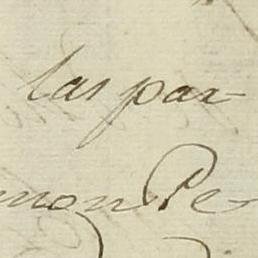 las par-
mon Pe-